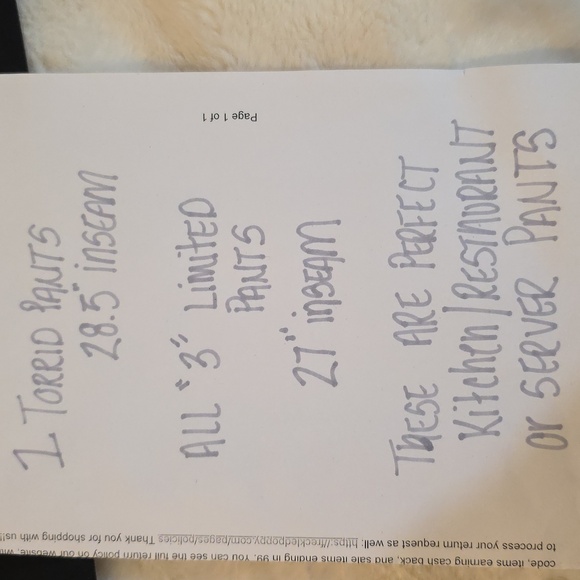 1 TORRID PANTS
28.5" inSEAM
ALL "3" LimiTED
PANTS
27" inSEAM
THESE ARE PERFECT
Kitchen/RESTAURANT
or SERVER PANTS
Page 1 of 1
code, items earning cash back, and sale items ending in 99. You can see the full return policy on our website,
to process your return request as well: https://freckledpoppy.com/pages/policies Thank you for shopping with us!